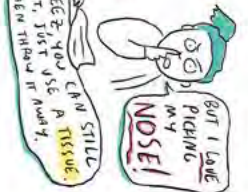 BUT I LOVE
PICKING
MY
NOSE!
EEZ, YOU CAN STILL
T. JUST USE A TISSUE.
EN THROW IT AWAY.